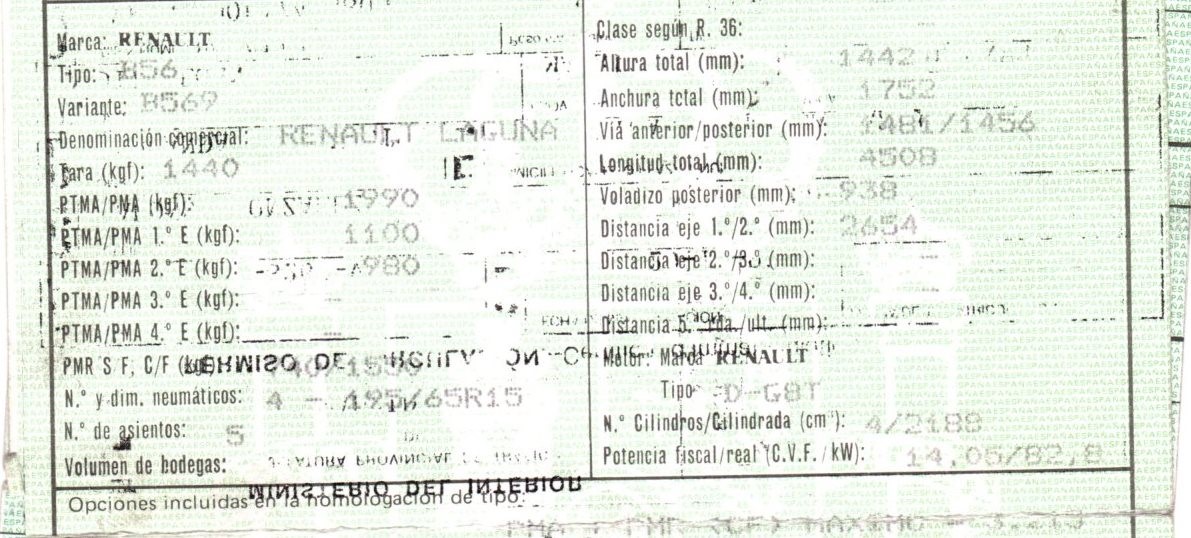 Marca: RENAULT
Tipo: B56
Variante: B569
Denominación comercial: RENAULT LAGUNA
Tara (kgf): 1440
PTMA/PMA (kgf): 1990
PTMA/PMA 1.º E (kgf): 1100
PTMA/PMA 2.º E (kgf): 980
PTMA/PMA 3.º E (kgf): —
PTMA/PMA 4.º E (kgf): —
PMR S/F, C/F (kgf):
N.º y dim. neumáticos: 4 – 195/65R15
N.º de asientos: 5
Volumen de bodegas:
Clase según R. 36:
Altura total (mm): 1442
Anchura total (mm): 1752
Vía anterior/posterior (mm): 1481/1456
Longitud total (mm): 4508
Voladizo posterior (mm): 938
Distancia eje 1.º/2.º (mm): 2654
Distancia eje 2.º/3.º (mm): —
Distancia eje 3.º/4.º (mm): —
Distancia 5. rda./ult. (mm):
Motor: Marca RENAULT
Tipo D-G8T
N.º Cilindros/Cilindrada (cm³): 4/2188
Potencia fiscal/real (C.V.F./kW): 14,05/82,8
Opciones incluidas en la homologación de tipo:
PERMISO DE
JEFATURA PROVINCIAL DE TRAFICO
MINISTERIO DEL INTERIOR